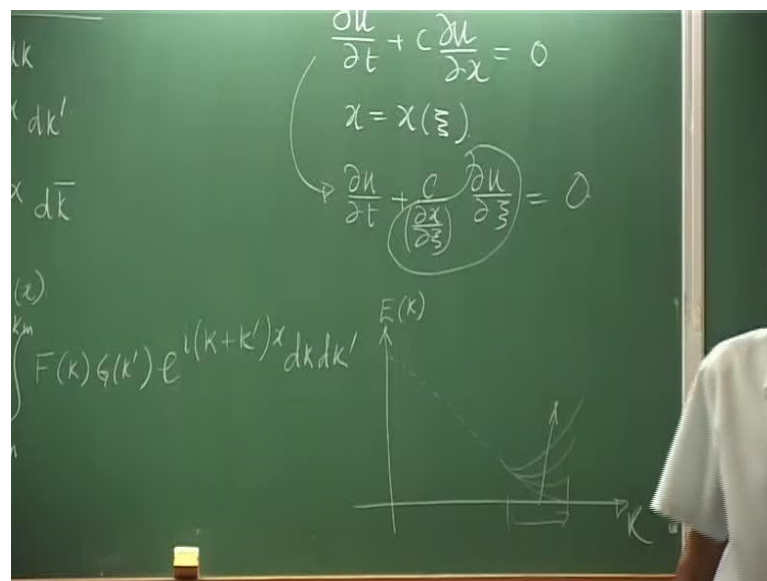 dk
dk'
x dk̄
(x)
km
∫ F(k) G(k') e^{i(k+k')x} dk dk'
∂u/∂t + c ∂u/∂x = 0
x = x(ξ)
∂u/∂t + c/(∂x/∂ξ) ∂u/∂ξ = 0
E(k)
k